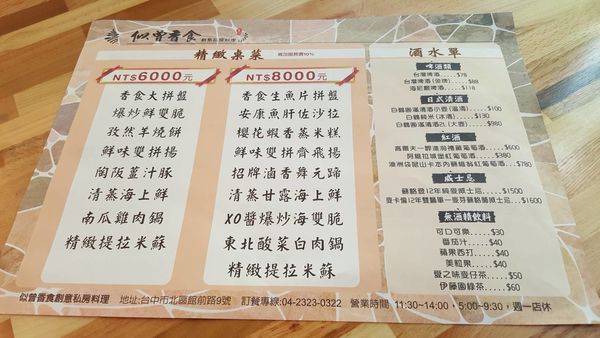 似曾香食 創意私房料理
精緻桌菜 需加服務費10%
NT$6000元
香食大拼盤
爆炒鮮雙脆
孜然羊燒餅
鮮味雙拼揚
陶阪薑汁豚
清蒸海上鮮
南瓜雞肉鍋
精緻提拉米蘇
NT$8000元
香食生魚片拼盤
安康魚肝佐沙拉
櫻花蝦香蒸米糕
鮮味雙拼齊飛揚
招牌滷香舜元蹄
清蒸甘露海上鮮
XO醬爆炒海雙脆
東北酸菜白肉鍋
精緻提拉米蘇
酒水單
啤酒類
台灣啤酒.....$78
台灣啤酒(金牌).....$88
海尼獻啤酒.....$118
日式清酒
白鶴圓滿清酒小壺(溫清).....$100
白鶴純米(冰酒).....$130
白鶴圓滿清酒2L(大壺).....$980
紅酒
$600
阿根廷城堡紅葡萄酒.....$380
$780
威士忌
蘇格登12年純麥威士忌.....$1500
麥卡倫12年雙鑭單一麥芽蘇格蘭威士忌.....$1600
無酒精飲料
可口可樂.....$30
番茄汁.....$40
蘋果西打.....$40
美粒果.....$40
愛之味麥仔茶.....$50
伊藤園綠茶.....$60
似曾香食創意私房料理 地址:台中市北區館前路9號 訂餐專線:04-2323-0322 營業時間 11:30~14:00，5:00~9:30，週一店休